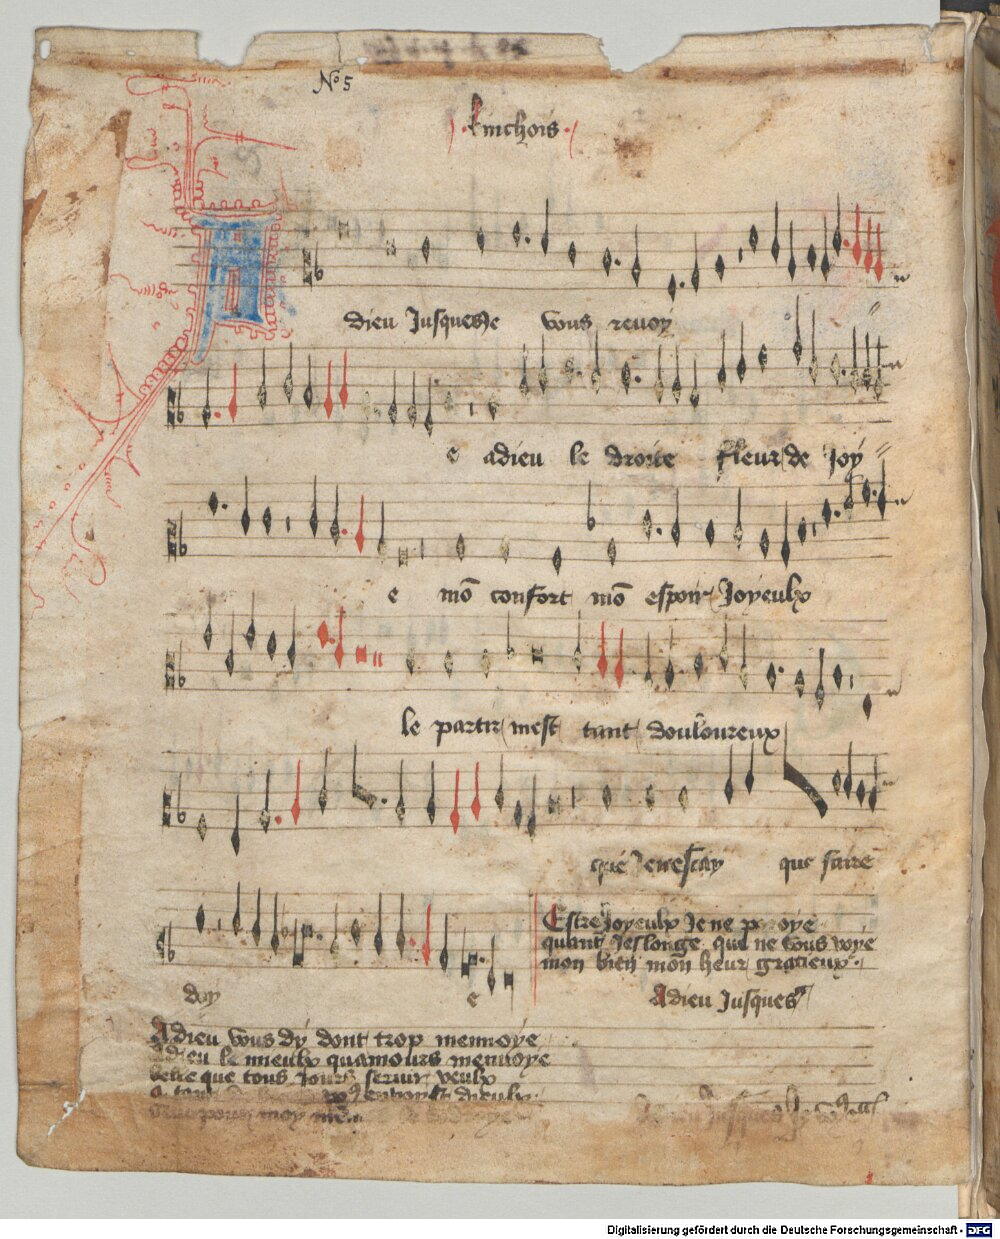 No 5
Binchois
dieu Jusques Je vous revoy
e adieu le droite fleur de Joy
e mō confort mō espoir Joyeulx
le partir mest tant douloureux
que Je ne scay que faire
doy e
Estre Joyeulx Je ne p oye
quant Jeslonge que ne vous voye
mon bien mon heur gracieux
Adieu Jusques
Adieu vous dy dont trop mennoye
Adieu le mieulx quamours menvoye
belle que tous Jours servir veulx
a dieulx
pour moy
Adieu Jusques
Digitalisierung gefördert durch die Deutsche Forschungsgemeinschaft - DFG